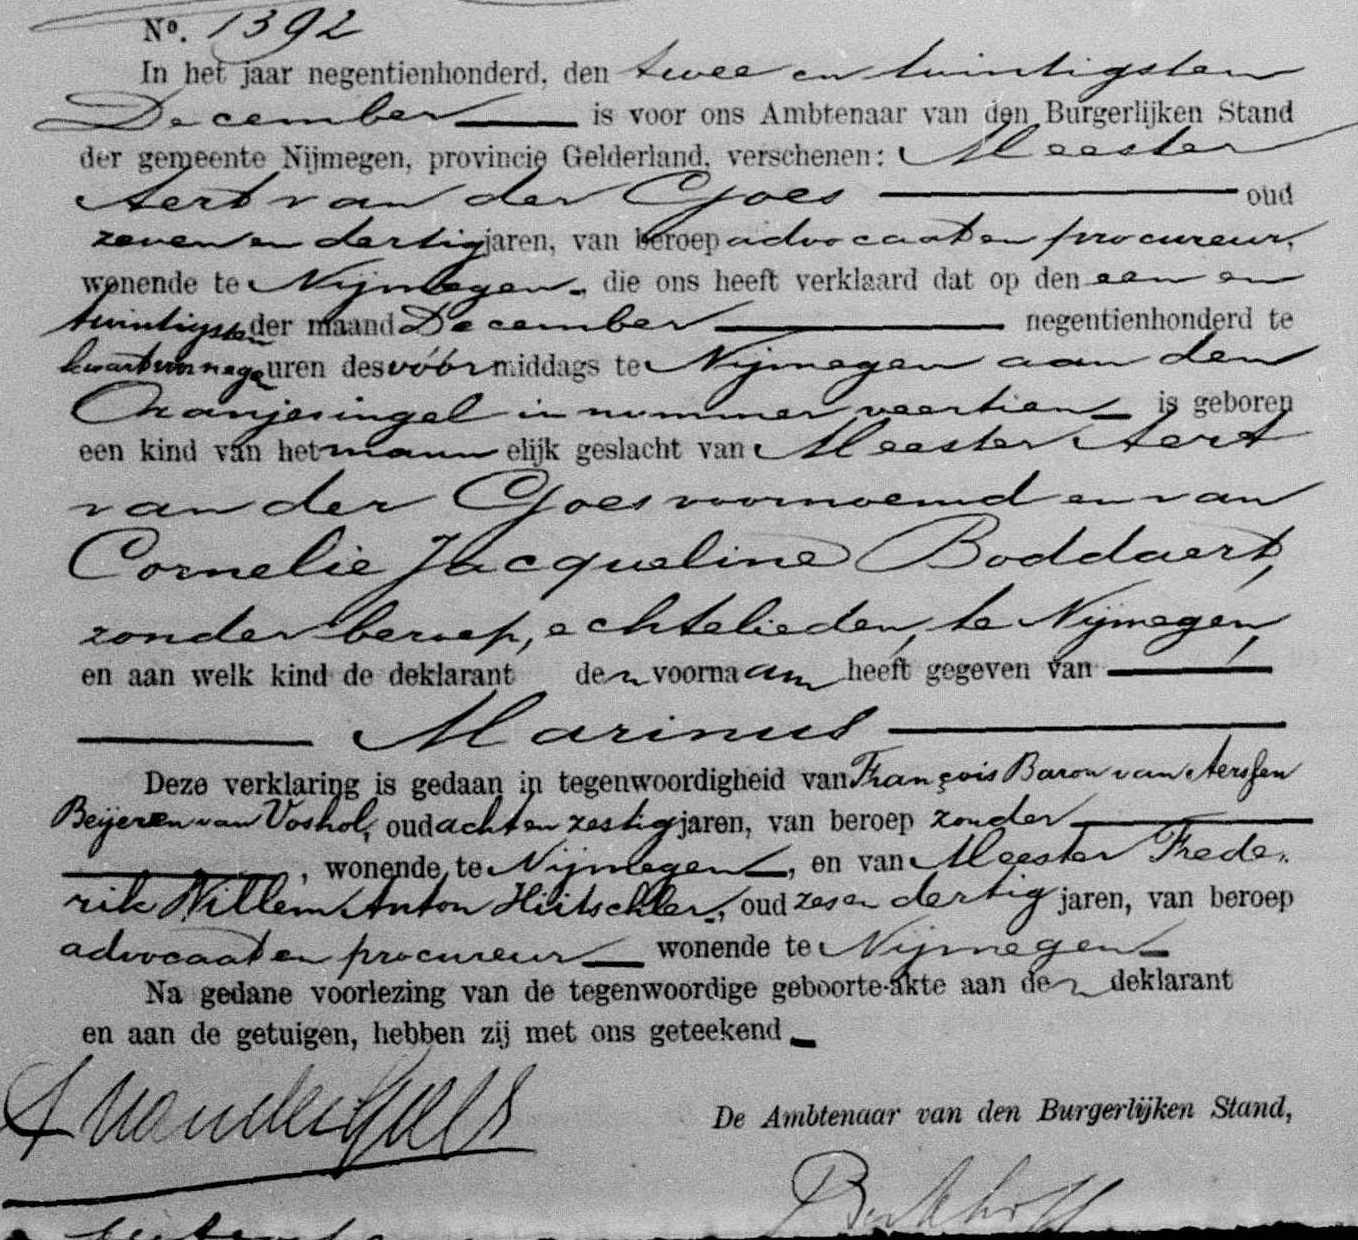 No. 1392
In het jaar negentienhonderd, den twee en twintigsten
December is voor ons Ambtenaar van den Burgerlijken Stand
der gemeente Nijmegen, provincie Gelderland, verschenen: Meester
Aert van der Goes oud
zeven en dertig jaren, van beroep advocaat en procureur,
wonende te Nijmegen, die ons heeft verklaard dat op den een en
twintigsten der maand December negentienhonderd te
kwart voor nege uren des vóórmiddags te Nijmegen aan den
Oranjesingel in nummer veertien is geboren
een kind van het mannelijk geslacht van Meester Aert
van der Goes voornoemd en van
Cornelie Jacqueline Boddaert,
zonder beroep, echtelieden, te Nijmegen,
en aan welk kind de deklarant den voornaam heeft gegeven van
Marinus
Deze verklaring is gedaan in tegenwoordigheid van François Baron van Aerssen
Beijeren van Voshol, oud acht en zestig jaren, van beroep zonder
, wonende te Nijmegen, en van Meester Frede-
rik Willem Anton Hütschler, oud zes en dertig jaren, van beroep
advocaat en procureur wonende te Nijmegen
Na gedane voorlezing van de tegenwoordige geboorte-akte aan den deklarant
en aan de getuigen, hebben zij met ons geteekend
A van der Goes
De Ambtenaar van den Burgerlijken Stand,